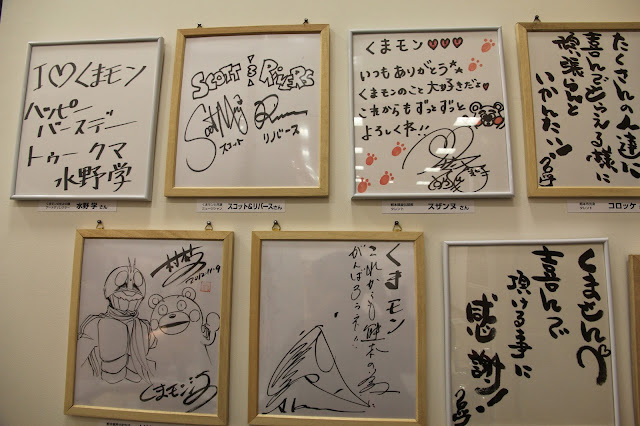 I♡くまモン
ハッピー
バースデー
トゥー クマ
水野学
水野 学 さん
SCOTT & RIVERS
スコット
リバース
スコット&リバース さん
くまモン♥♥♥
いつもありがとう
くまモンのこと大好きだよ
これからもずっとずっと
よろしくね!!
スザンヌ さん
たくさんの人達に
喜んでもらえる様に
頑張らんと
いかんたい!
コロッケ さん
2012.11.9
くまモンさん江
くまモン
これからも熊本の為に
がんばろうネ!!
くませんへ
喜んで
頂ける事に
感謝!